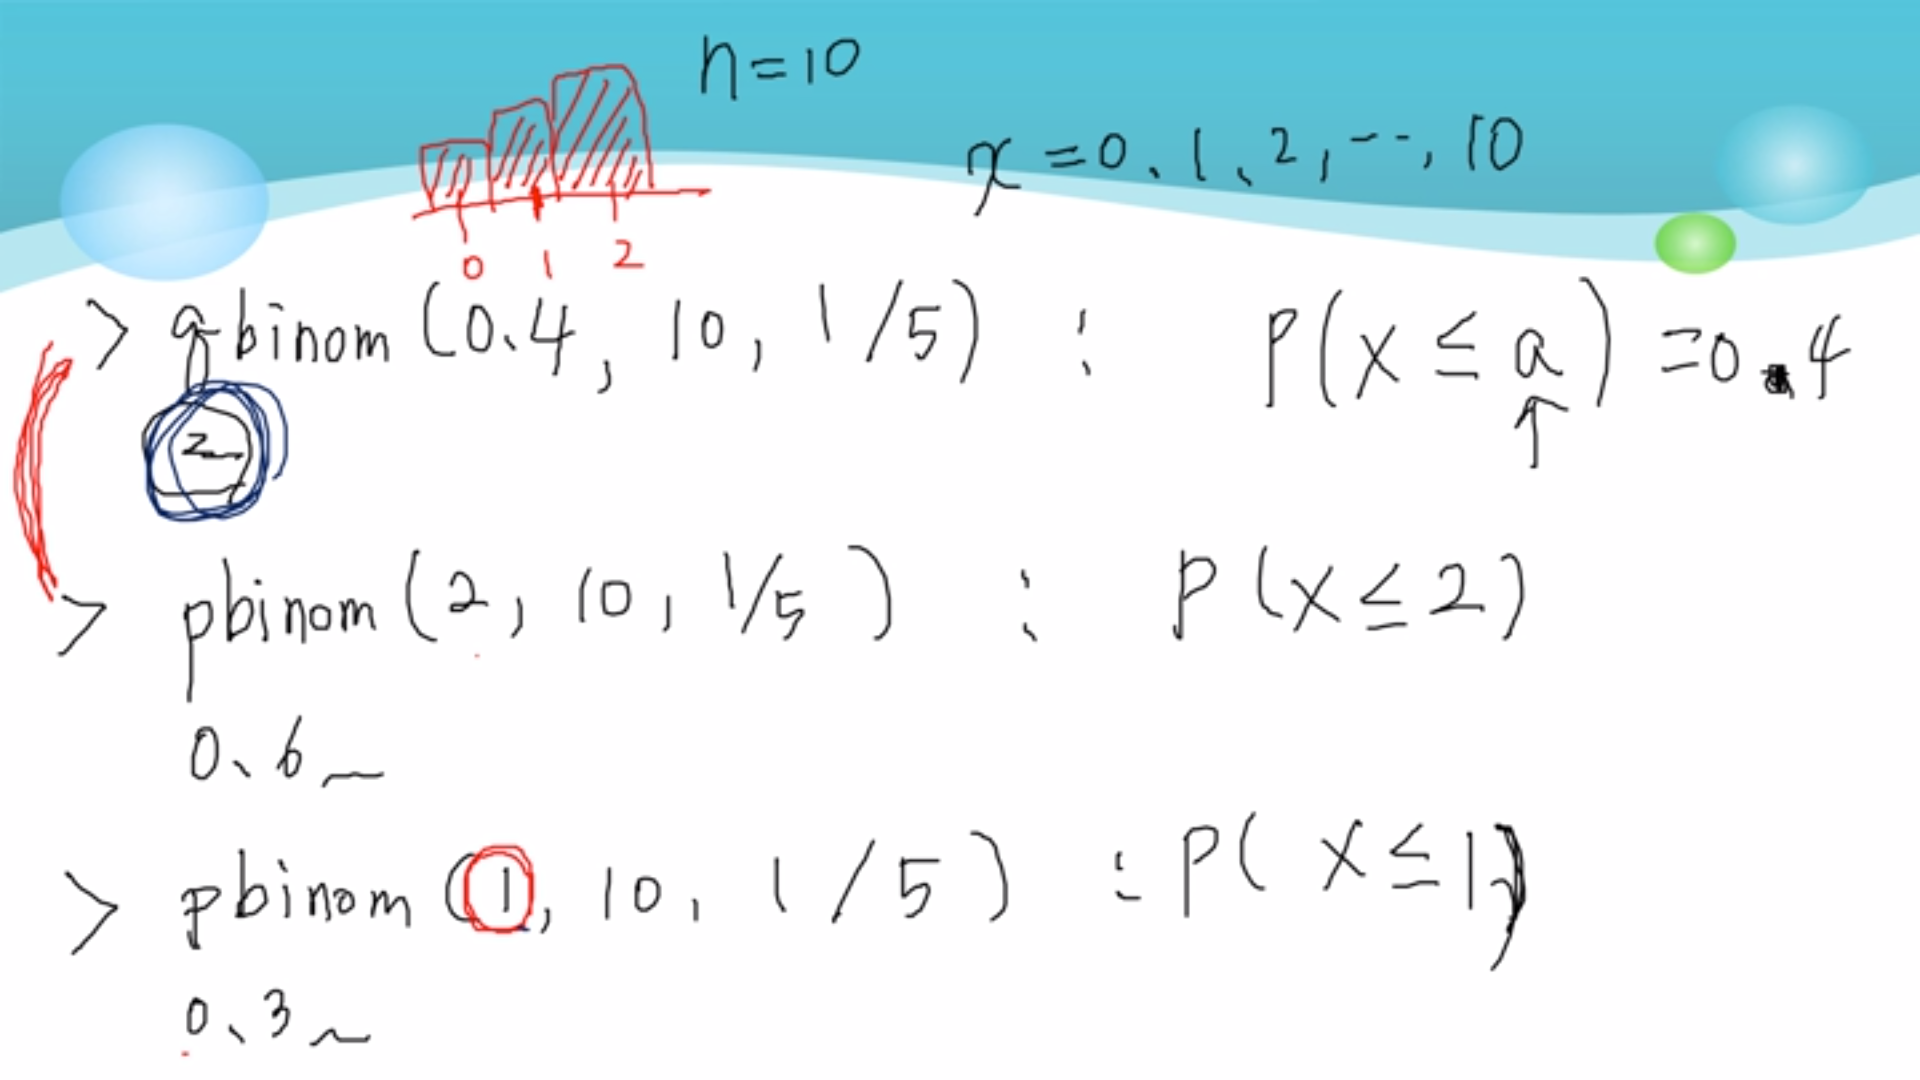 n=10
x=0、1、2, ‥, 10
0 1 2
> qbinom(0.4, 10, 1/5) : P(X≤a)=0.4
↑
2
> pbinom(2, 10, 1/5) : P(X≤2)
0.6~
> pbinom(1, 10, 1/5) : P(X≤1)
0.3~